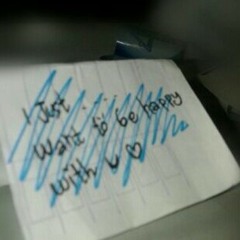 I Just
Want to be happy
with u ♡